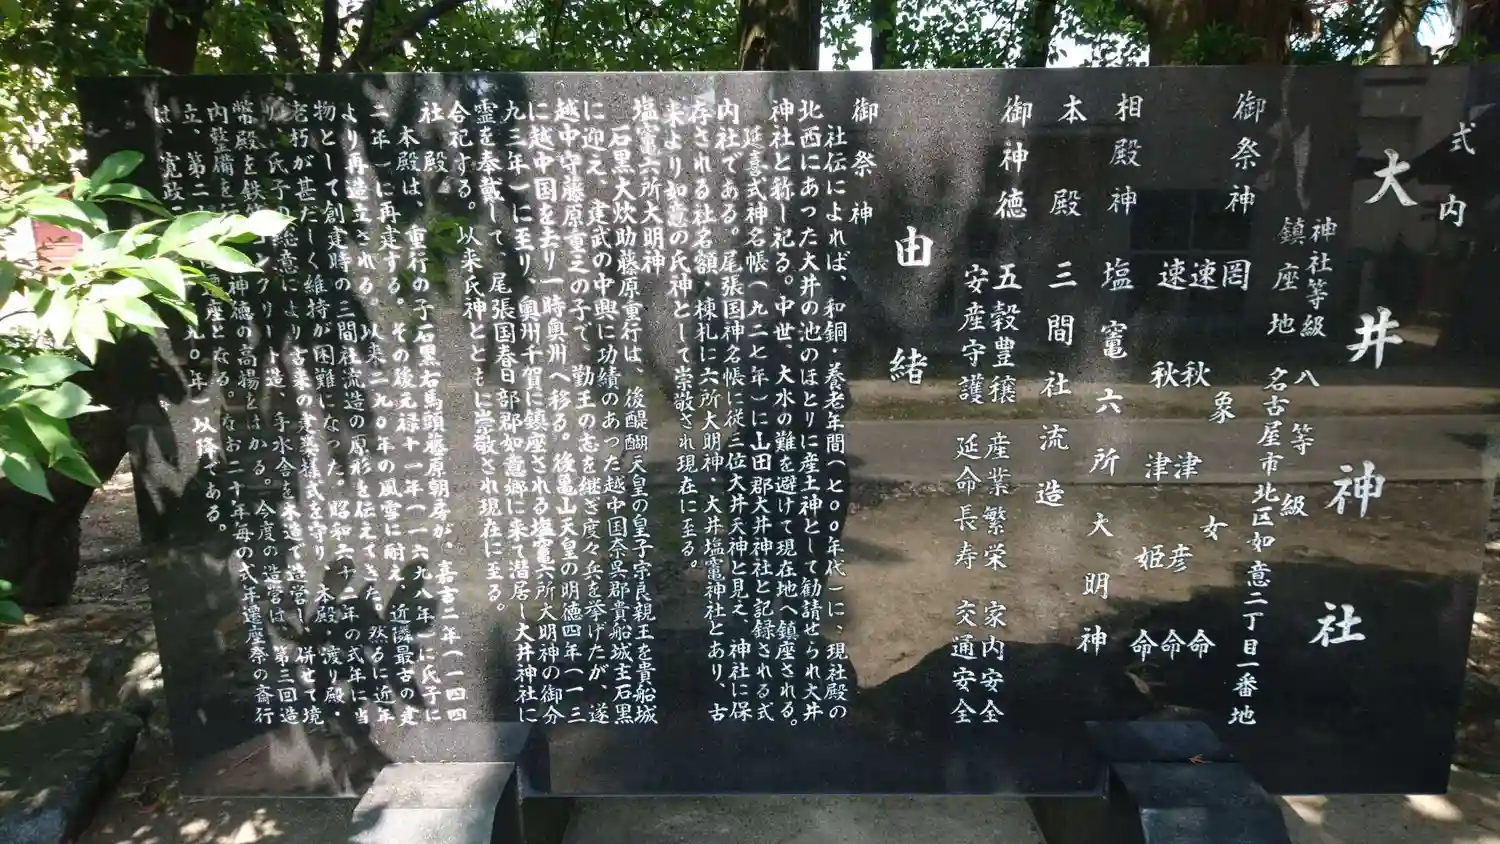 式内
大井神社
神社等級 八等級
鎮座地 名古屋市北区如意二丁目一番地
御祭神 罔象女命
速秋津彦命
速秋津姫命
相殿神 塩竈六所大明神
本殿 三間社流造
御神徳 五穀豊穣 産業繁栄 家内安全
安産守護 延命長寿 交通安全
由緒
御祭神
社伝によれば、和銅・養老年間(七〇〇年代)に、現社殿の
北西にあった大井の池のほとりに産土神として勧請せられ大井
神社と称し祀る。中世、大水の難を避けて現在地へ鎮座される。
延喜式神名帳(九二七年)に山田郡大井神社と記録される式
内社である。尾張国神名帳に従三位大井天神と見え、神社に保
存される社名額・棟札に六所大明神・大井塩竈神社とあり、古
来より如意の氏神として崇敬され現在に至る。
塩竈六所大明神
石黒大炊助藤原重行は、後醍醐天皇の皇子宗良親王を貴船城
に迎え、建武の中興に功績のあった越中国奈呉郡貴船城主石黒
越中守藤原重之の子で、勤王の志を継ぎ度々兵を挙げたが、遂
に越中国を去り一時奥州へ移る。後亀山天皇の明徳四年(一三
九三年)に至り、奥州千賀に鎮座される塩竈六所大明神の御分
霊を奉戴して、尾張国春日部郡如意郷に来て潜居し大井神社に
合祀する。以来氏神とともに崇敬され現在に至る。
社殿
本殿は、重行の子石黒右馬頭藤原朝房が、嘉吉二年(一四四
二年)に再建する。その後元禄十一年(一六九八年)に氏子に
より再造立される。以来二九〇年の風雪に耐え、近隣最古の建
物として創建時の三間社流造の原形を伝えてきた。然るに近年
老朽が甚だしく維持が困難になった。昭和六十二年の式年に当
り、氏子の総意により古来の建築様式を守り、本殿・渡り殿・
幣殿を鉄コンクリート造、手水舎を木造で造営し、併せて境
内整備を神徳の高揚をはかる。今度の造営は、第三回造
立、第二十座となる。なお二十年毎の式年遷座祭の斎行
は、寛政九〇年)以降である。